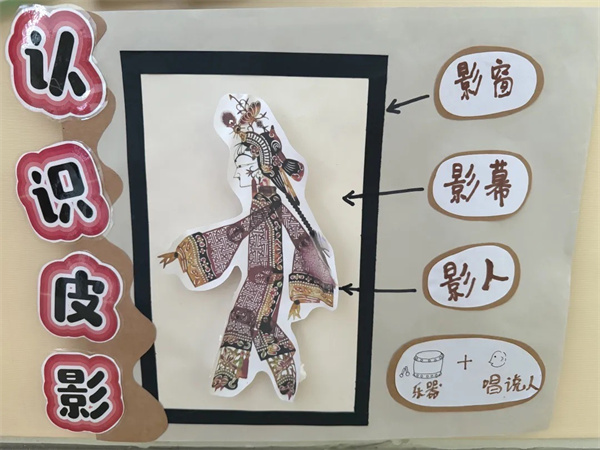 认识皮影
影窗
影幕
影人
乐器
唱说人